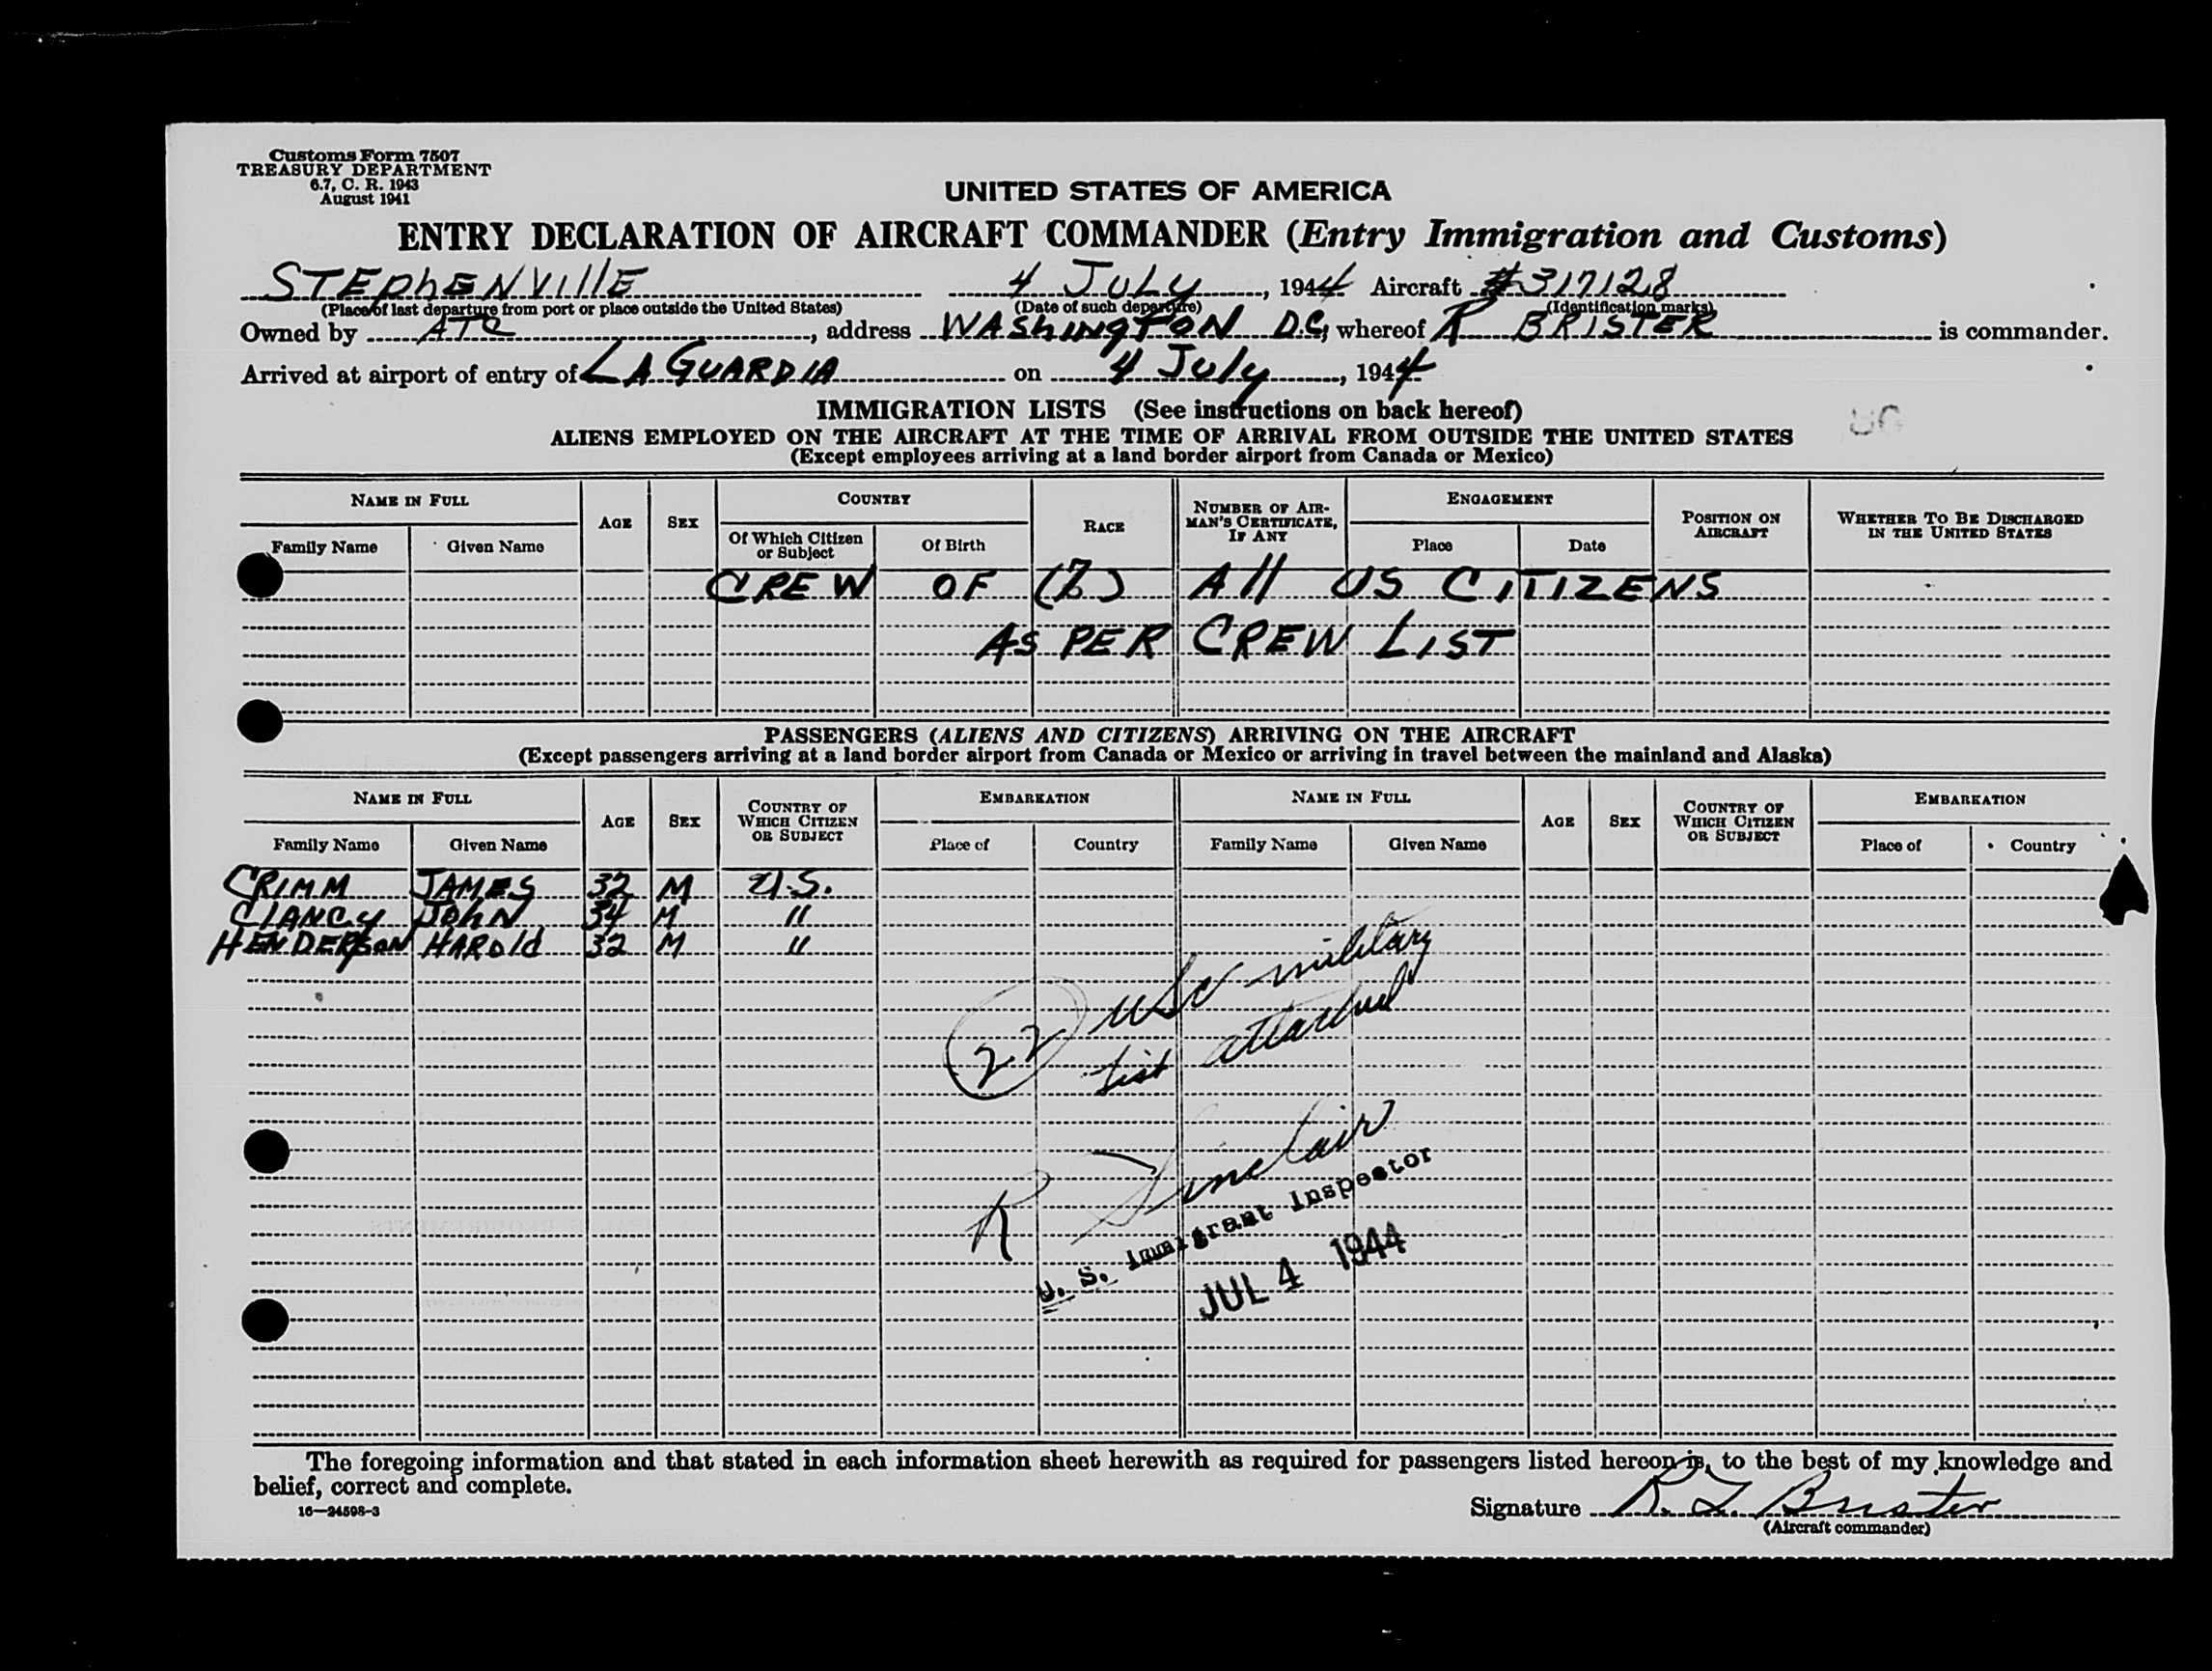 Customs Form 7507
TREASURY DEPARTMENT
6.7, C. R. 1943
August 1941
UNITED STATES OF AMERICA
ENTRY DECLARATION OF AIRCRAFT COMMANDER (Entry Immigration and Customs)
STEphENVIllE 4 JULY, 1944 Aircraft #317128
(Place of last departure from port or place outside the United States) (Date of such departure) (Identification marks)
Owned by ATC, address WAShINgTON D.C, whereof R BRISTER is commander.
Arrived at airport of entry of LA GUARDIA on 4 July, 1944
IMMIGRATION LISTS (See instructions on back hereof)
ALIENS EMPLOYED ON THE AIRCRAFT AT THE TIME OF ARRIVAL FROM OUTSIDE THE UNITED STATES
(Except employees arriving at a land border airport from Canada or Mexico)
NAME IN FULL AGE SEX COUNTRY RACE NUMBER OF AIRMAN'S CERTIFICATE, IF ANY ENGAGEMENT POSITION ON AIRCRAFT WHETHER TO BE DISCHARGED IN THE UNITED STATES
Family Name Given Name Of Which Citizen or Subject Of Birth Place Date
CREW OF All US CITIZENS
AS PER CREW LIST
PASSENGERS (ALIENS AND CITIZENS) ARRIVING ON THE AIRCRAFT
(Except passengers arriving at a land border airport from Canada or Mexico or arriving in travel between the mainland and Alaska)
NAME IN FULL AGE SEX COUNTRY OF WHICH CITIZEN OR SUBJECT EMBARKATION NAME IN FULL AGE SEX COUNTRY OF WHICH CITIZEN OR SUBJECT EMBARKATION
Family Name Given Name Place of Country Family Name Given Name Place of Country
CRIMM JAMES 32 M U.S.
ClANCy JOhN 34 M "
HENDERSON HAROld 32 M "
22 USC military
list attached
R Sinclair
U. S. Immigrant Inspector
JUL 4 1944
The foregoing information and that stated in each information sheet herewith as required for passengers listed hereon is, to the best of my knowledge and
belief, correct and complete.
16—24598-3
Signature R. L. Brister
(Aircraft commander)